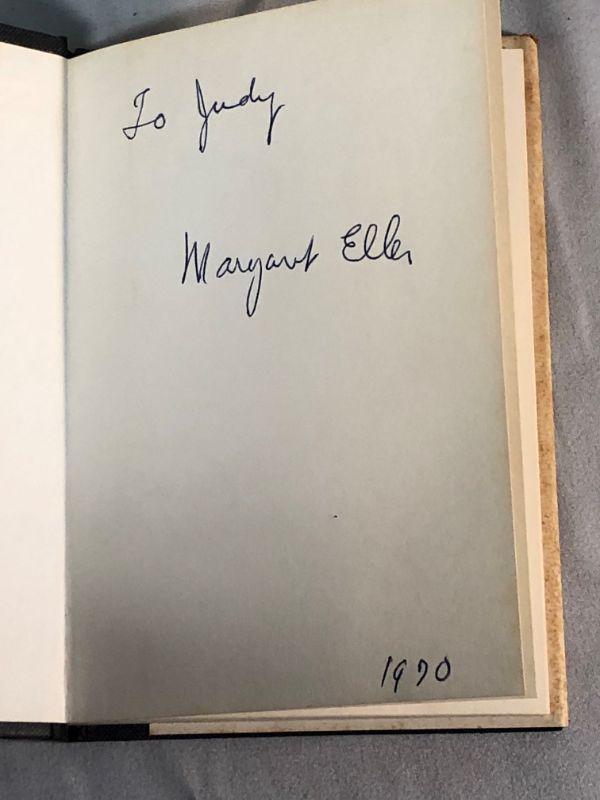 To Judy
Margaret Eller
1970